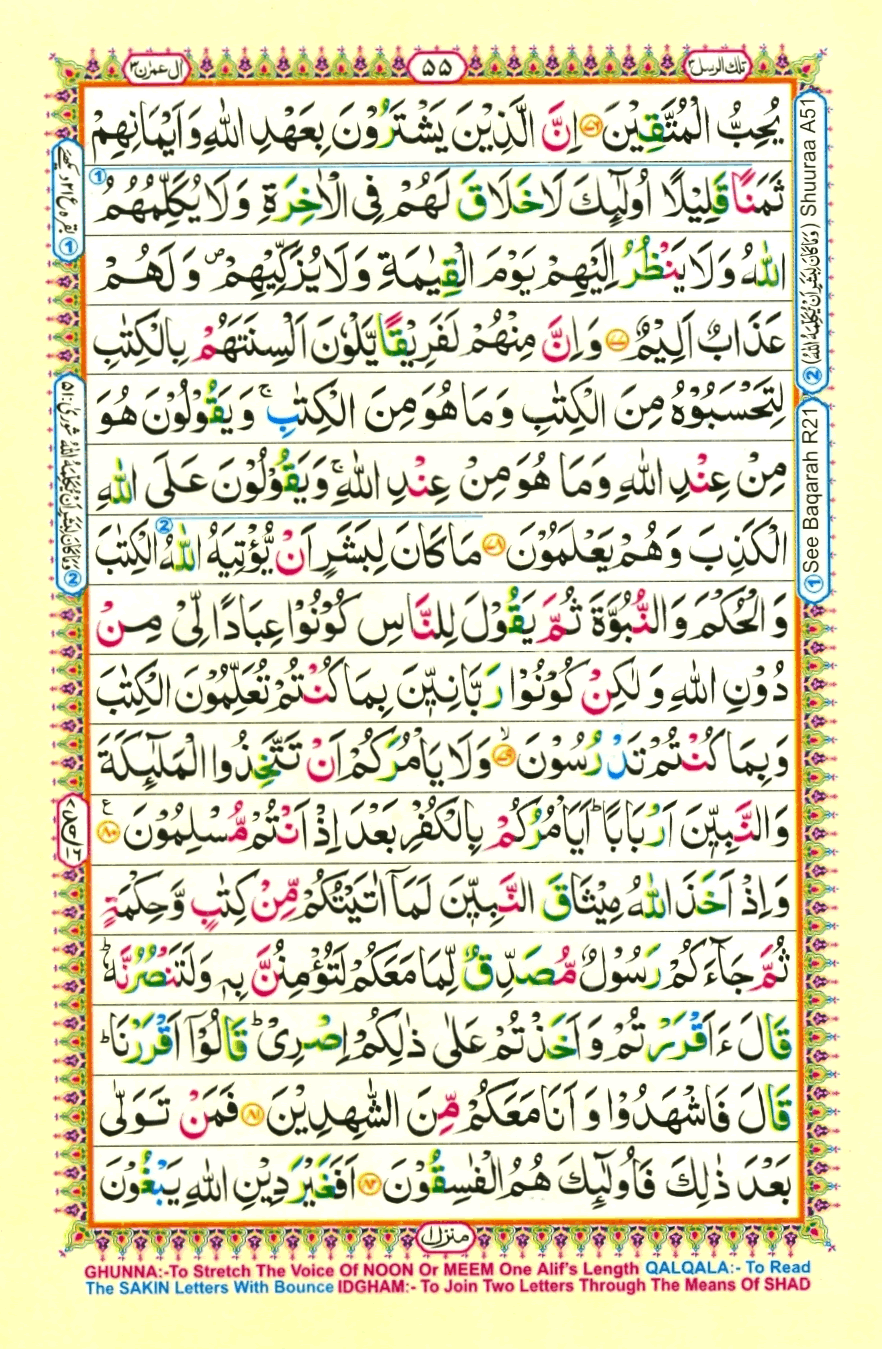 تلك الرسل ٣
٥٥
اٰل عمرٰن ٣
يُحِبُّ الْمُتَّقِيْنَ ﴿٧٦﴾ اِنَّ الَّذِيْنَ يَشْتَرُوْنَ بِعَهْدِ اللّٰهِ وَاَيْمَانِهِمْ
ثَمَنًا قَلِيْلًا اُولٰٓئِكَ لَا خَلَاقَ لَهُمْ فِى الْاٰخِرَةِ وَلَا يُكَلِّمُهُمُ ①
اللّٰهُ وَلَا يَنْظُرُ اِلَيْهِمْ يَوْمَ الْقِيٰمَةِ وَلَا يُزَكِّيْهِمْ ۪ وَلَهُمْ
عَذَابٌ اَلِيْمٌ ﴿٧٧﴾ وَاِنَّ مِنْهُمْ لَفَرِيْقًا يَّلْوٗنَ اَلْسِنَتَهُمْ بِالْكِتٰبِ
لِتَحْسَبُوْهُ مِنَ الْكِتٰبِ وَمَا هُوَ مِنَ الْكِتٰبِ ۚ وَيَقُوْلُوْنَ هُوَ
مِنْ عِنْدِ اللّٰهِ وَمَا هُوَ مِنْ عِنْدِ اللّٰهِ ۚ وَيَقُوْلُوْنَ عَلَى اللّٰهِ
الْكَذِبَ وَهُمْ يَعْلَمُوْنَ ﴿٧٨﴾ مَا كَانَ لِبَشَرٍ اَنْ يُّؤْتِيَهُ ② اللّٰهُ الْكِتٰبَ
وَالْحُكْمَ وَالنُّبُوَّةَ ثُمَّ يَقُوْلَ لِلنَّاسِ كُوْنُوْا عِبَادًا لِّىْ مِنْ
دُوْنِ اللّٰهِ وَلٰكِنْ كُوْنُوْا رَبّٰنِيّٖنَ بِمَا كُنْتُمْ تُعَلِّمُوْنَ الْكِتٰبَ
وَبِمَا كُنْتُمْ تَدْرُسُوْنَ ﴿٧٩﴾ ۙ وَلَا يَاْمُرَكُمْ اَنْ تَتَّخِذُوا الْمَلٰٓئِكَةَ
وَالنَّبِيّٖنَ اَرْبَابًا ؕ اَيَاْمُرُكُمْ بِالْكُفْرِ بَعْدَ اِذْ اَنْتُمْ مُّسْلِمُوْنَ ﴿٨٠﴾ ع
وَاِذْ اَخَذَ اللّٰهُ مِيْثَاقَ النَّبِيّٖنَ لَمَاۤ اٰتَيْتُكُمْ مِّنْ كِتٰبٍ وَّحِكْمَةٍ
ثُمَّ جَآءَكُمْ رَسُوْلٌ مُّصَدِّقٌ لِّمَا مَعَكُمْ لَتُؤْمِنُنَّ بِهٖ وَلَتَنْصُرُنَّهٗ ؕ
قَالَ ءَاَقْرَرْتُمْ وَاَخَذْتُمْ عَلٰى ذٰلِكُمْ اِصْرِىْ ؕ قَالُوْۤا اَقْرَرْنَا ؕ
قَالَ فَاشْهَدُوْا وَاَنَا مَعَكُمْ مِّنَ الشّٰهِدِيْنَ ﴿٨١﴾ فَمَنْ تَوَلّٰى
بَعْدَ ذٰلِكَ فَاُولٰٓئِكَ هُمُ الْفٰسِقُوْنَ ﴿٨٢﴾ اَفَغَيْرَ دِيْنِ اللّٰهِ يَبْغُوْنَ
② (وَمَا كَانَ لِبَشَرٍ اَنْ يُّكَلِّمَهُ اللّٰهُ) Shuuraa A51
① See Baqarah R21
منزل ١
GHUNNA:-To Stretch The Voice Of NOON Or MEEM One Alif's Length QALQALA:- To Read
The SAKIN Letters With Bounce IDGHAM:- To Join Two Letters Through The Means Of SHAD